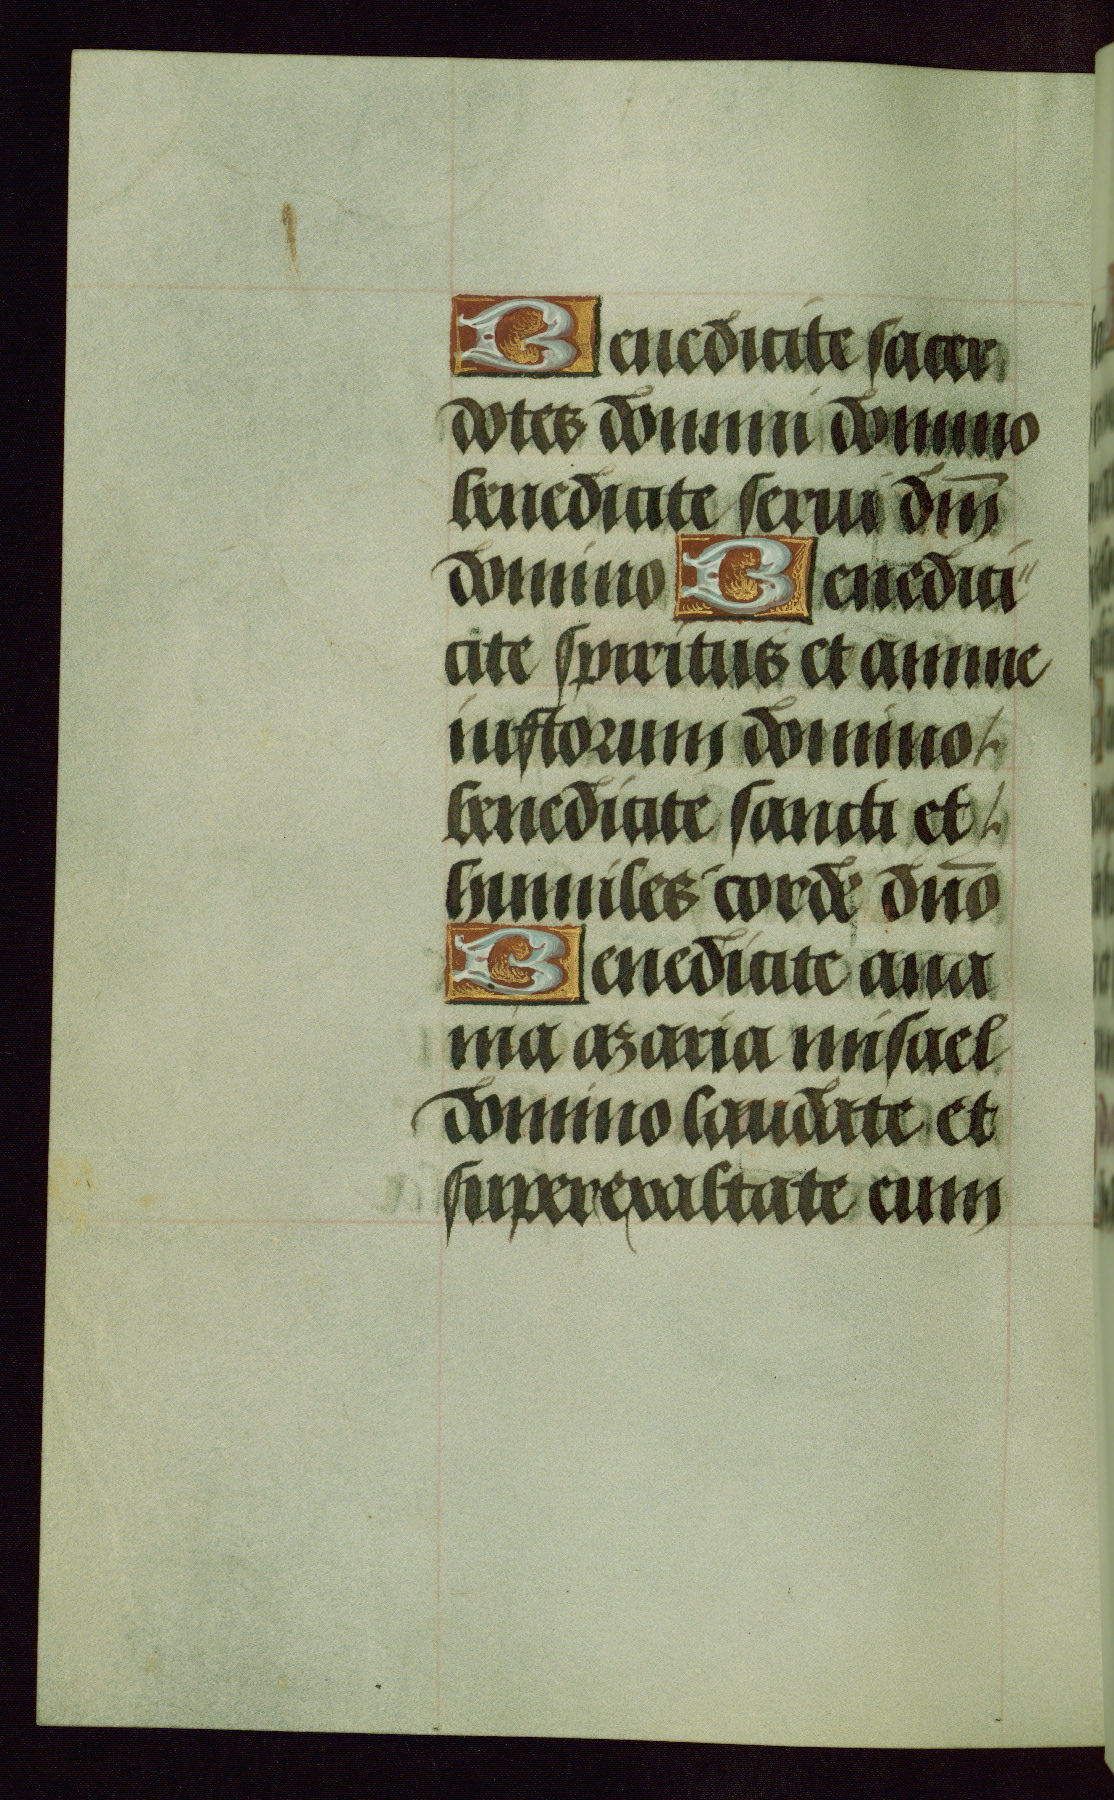 Benedicite sacer
dotes domini domino
benedicite serui dm̄
domino Benedici"
cite spiritus et anime
iustorum domino
benedicite sancti et
humiles corde dn̄o
Benedicite ana
nia azaria misael
domino laudate et
superexaltate eum